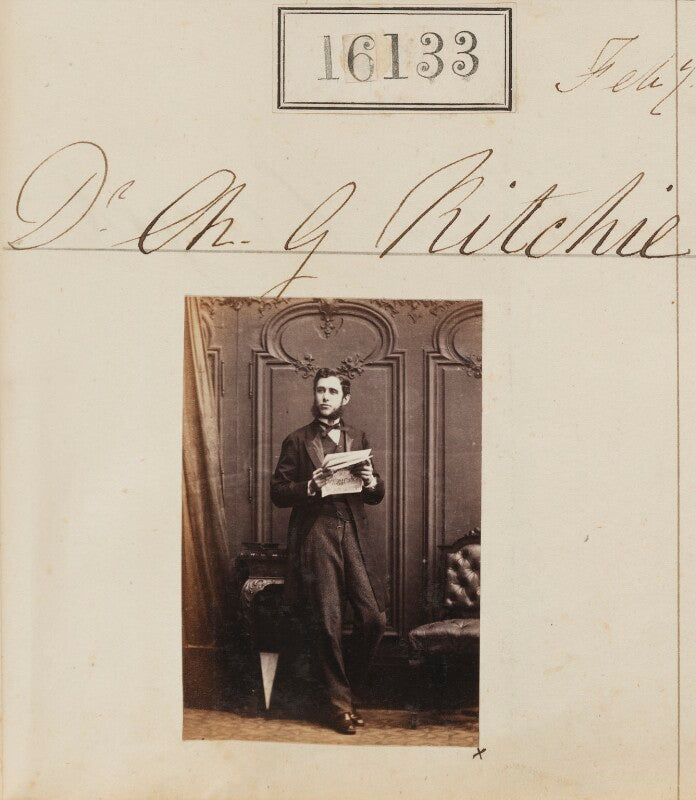 16133
Feby.
Dr. Ch. G Ritchie
x